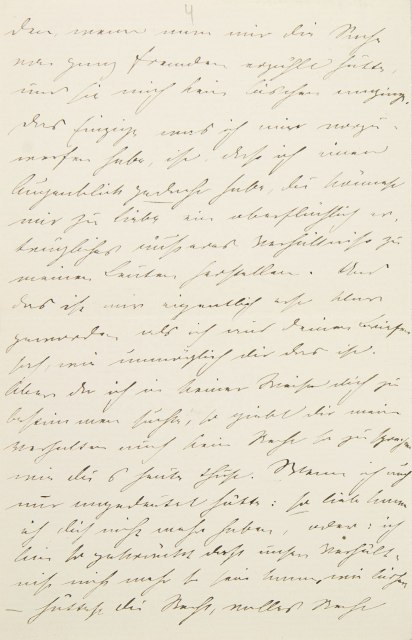 4
den, wenn man mir die Sache
von ganz Fremden erzählt hätte,
und sie mich kein bischen anginge.
Das Einzige was ich mir vorzu-
werfen habe, ist, dass ich einen
Augenblick gedacht habe, du könntest
mir zu Liebe ein oberflächlich er-
trägliches äusseres Verhältniss zu
meinen Leuten herstellen. Und
das ist mir eigentlich erst klar
geworden als ich aus deinen Briefen
sah, wie unmöglich dir das ist.
Aber da ich in keiner Weise dich zu
bestimmen suchte, so giebt dir mein
Verhalten auch kein Recht so zu sprechen
wie du es heute thust. Wenn ich auch
nur angedeutet hätte: so lieb kann
ich dich nicht mehr haben, oder: ich
bin so gekränkt dass unser Verhält-
niss nicht mehr so sein kann, wie früher
— hättest du Recht, volles Recht